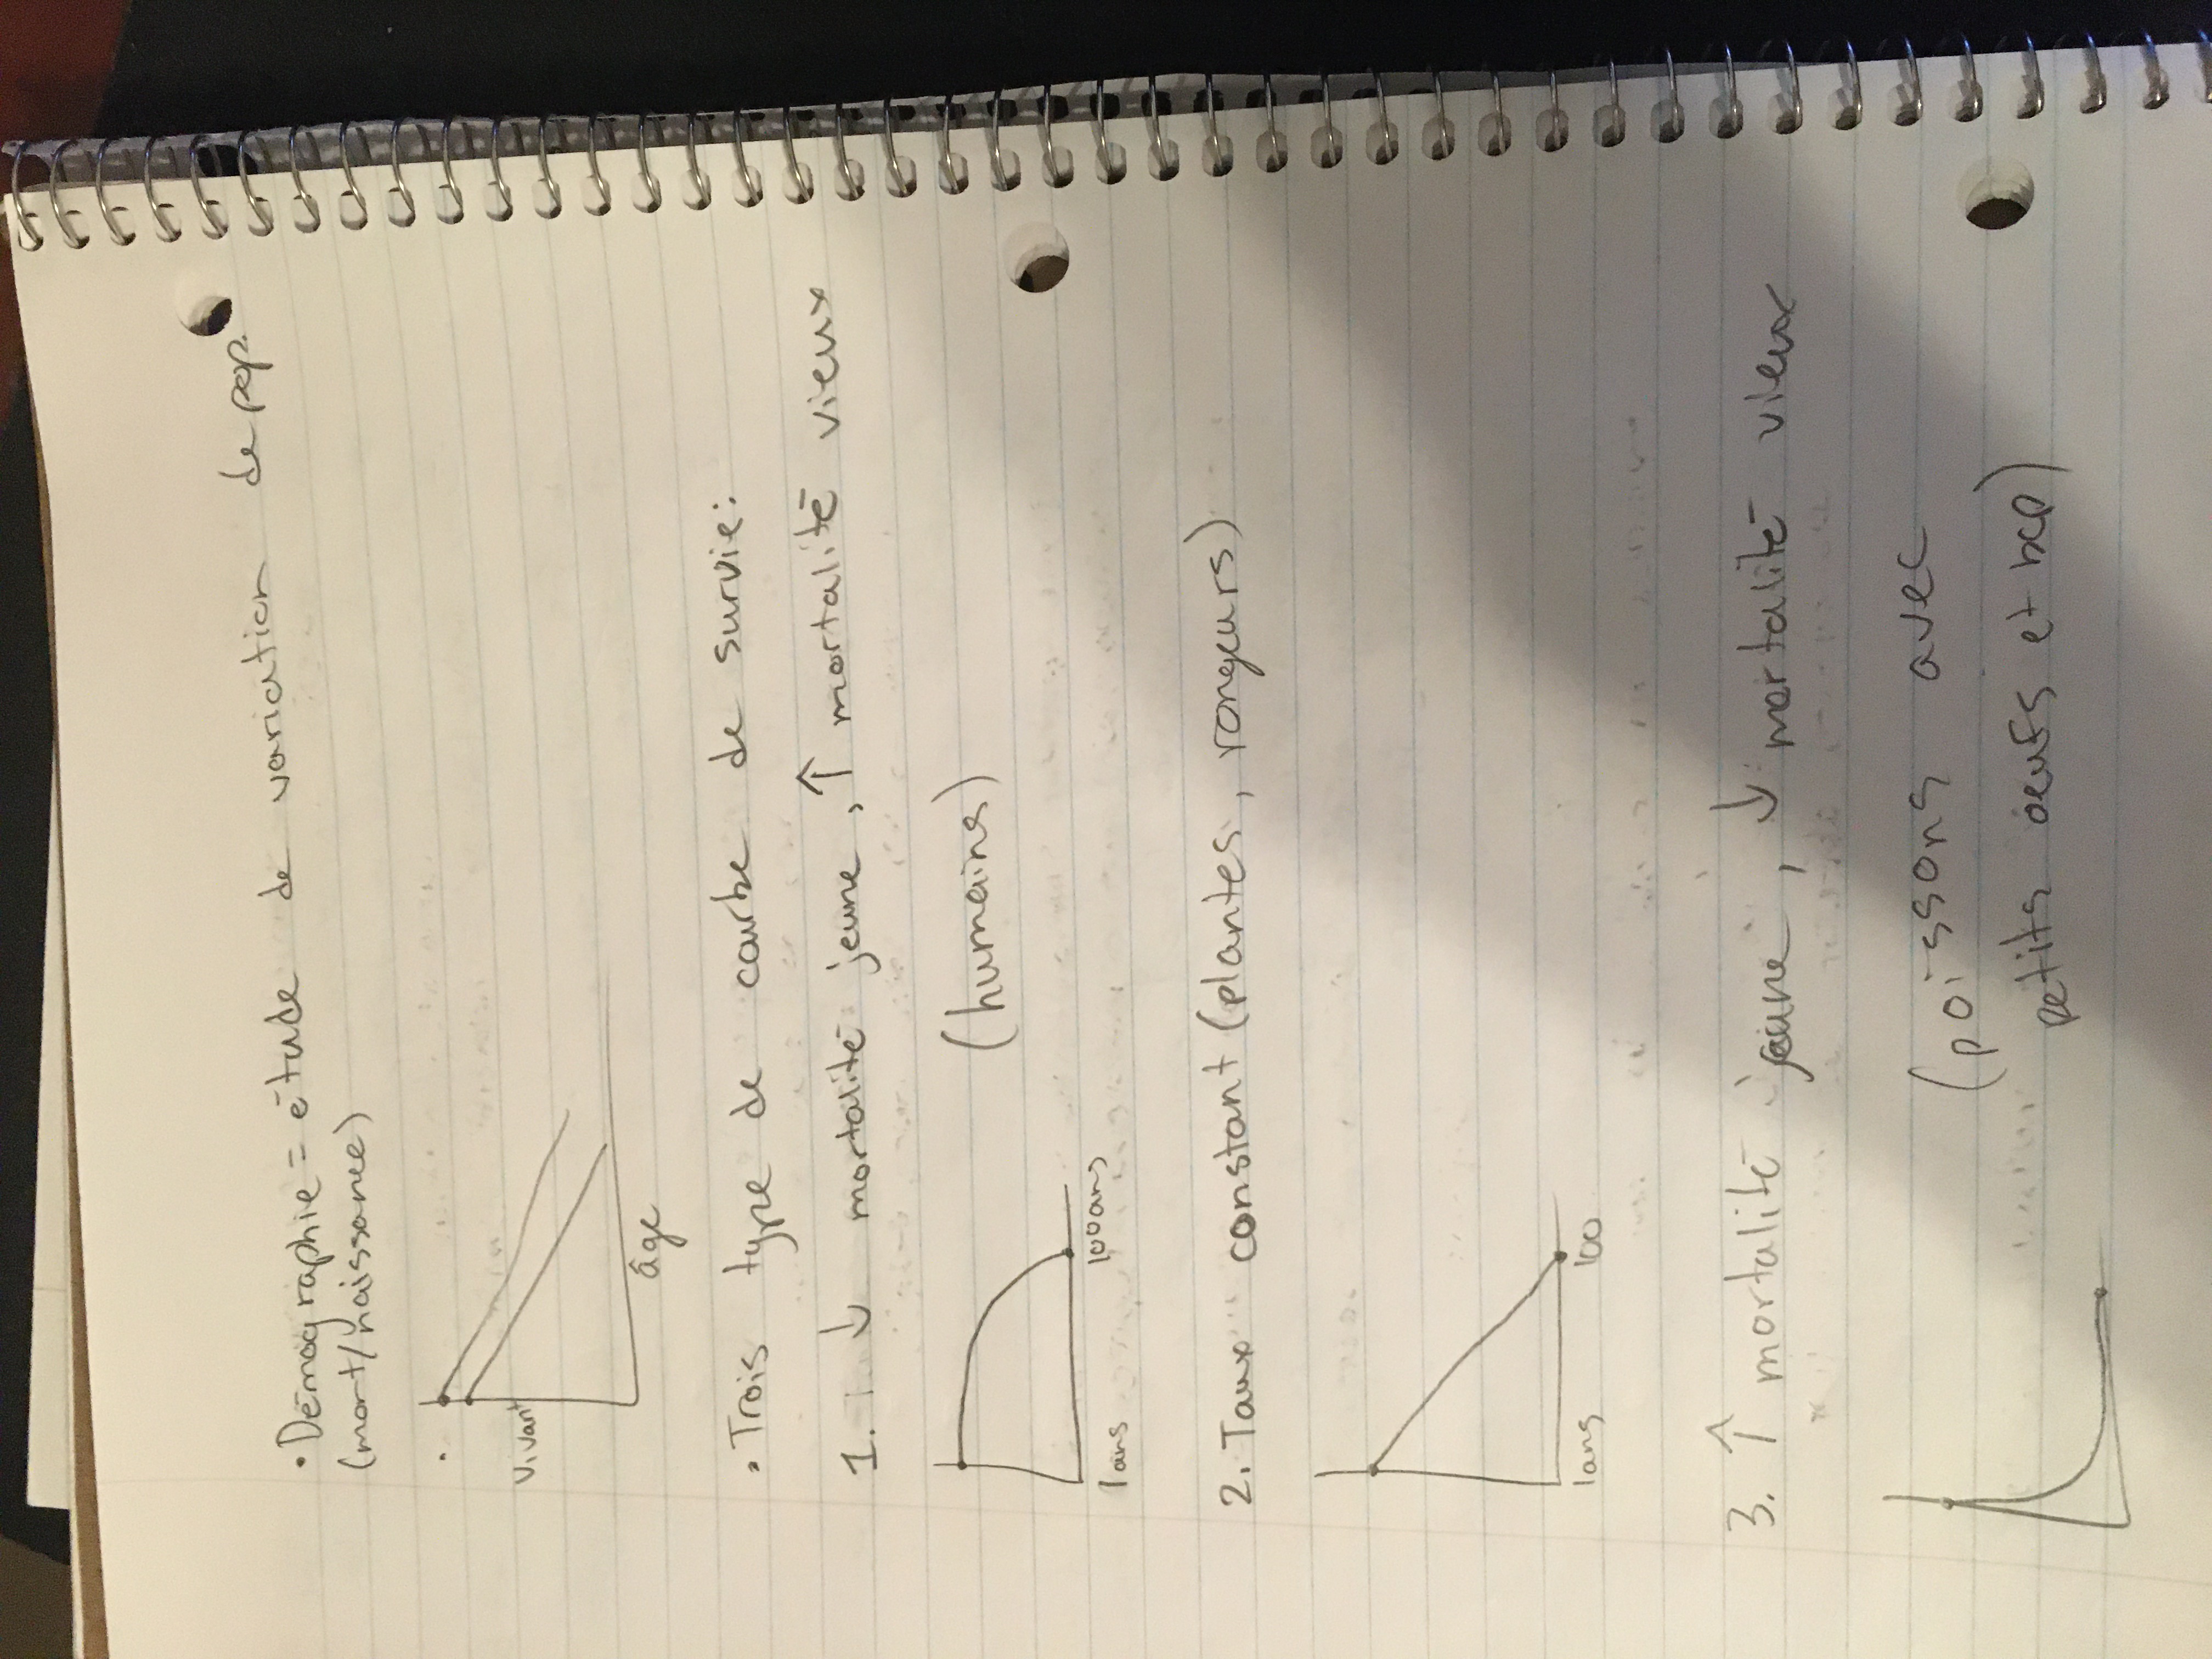 • Démographie = étude de variation de pop.
(mort/naissance)
•
vivant
âge
• Trois type de courbe de survie:
1. ↓ mortalité jeune, ↑ mortalité vieux
(humains)
1ans 100ans
2. Taux constant (plantes, rongeurs)
1ans 100
3. ↑ mortalité jeune, ↓ mortalité vieux
(poissons avec
petits oeufs et bcp)